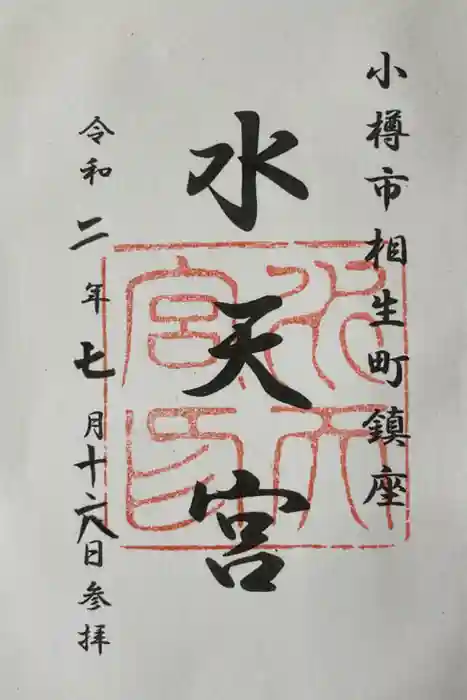 小樽市相生町鎮座
水天宮
水天宮印
令和二年七月十六日参拝